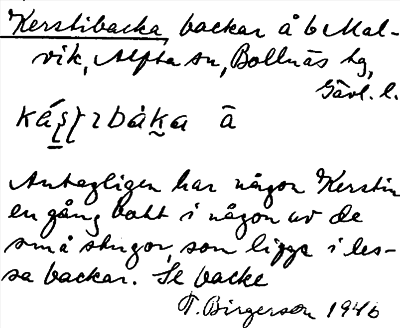 Kerstibacka, backar å b Mal-
vik, Alfta sn, Bollnäs hg,
Gävl. l.
ā
Antagligen har någon Kerstin
en gång bott i någon av de
små stugor, som ligga i des-
sa backar. Se backe
T. Birgerson 1946